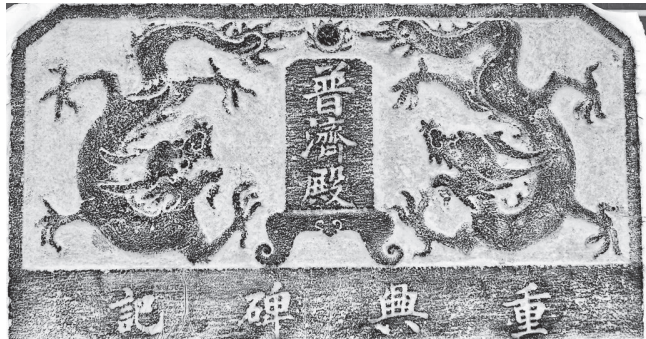 普濟殿
重興碑記